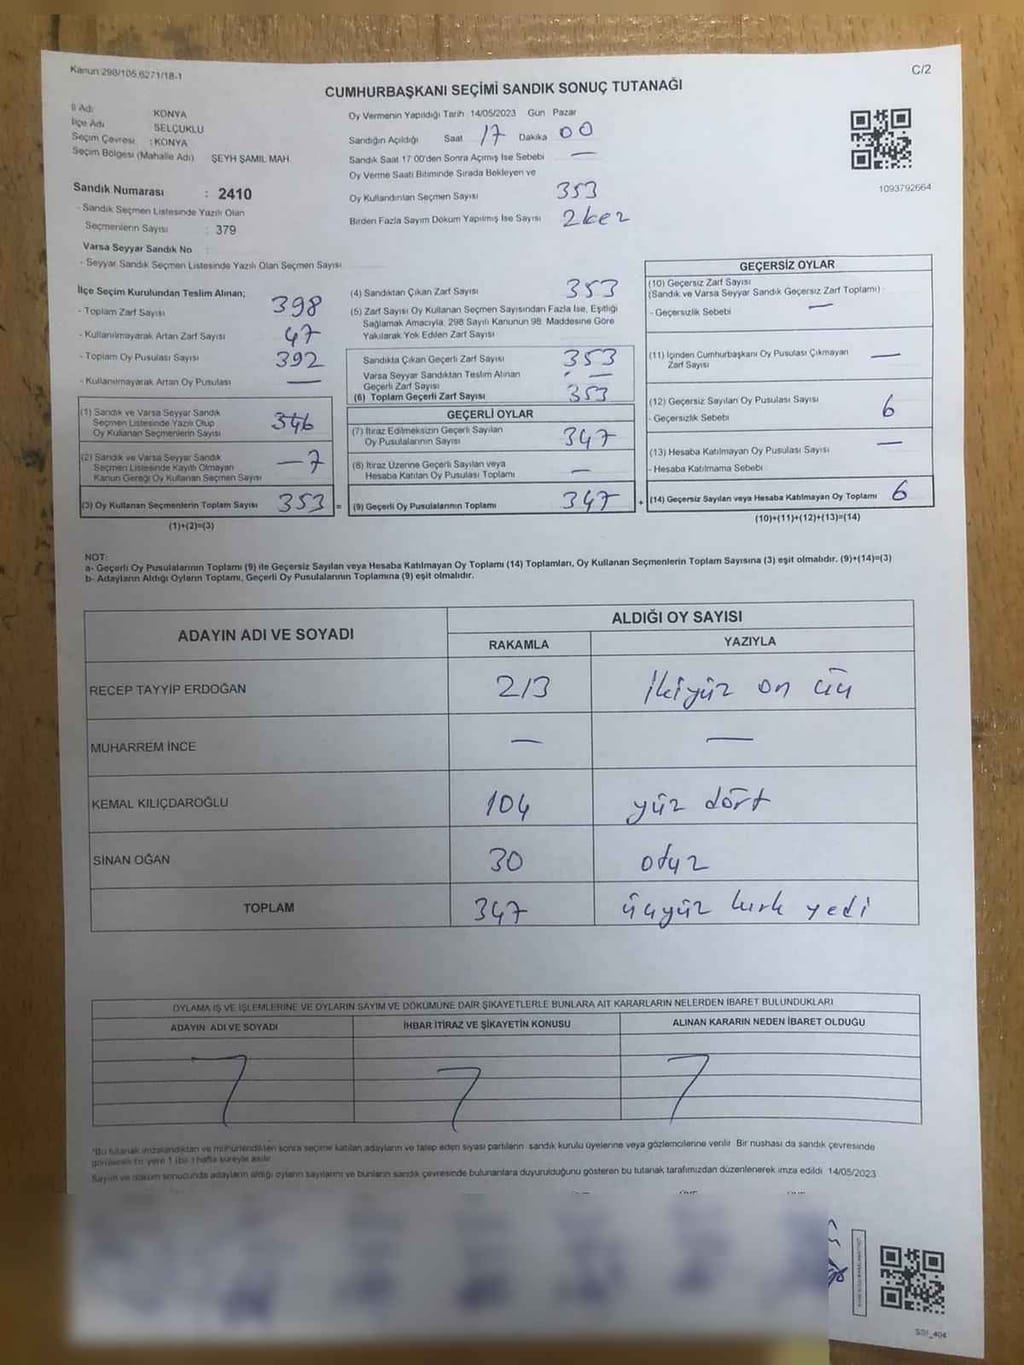 Kanun 298/105,6271/18-1
C/2
CUMHURBAŞKANI SEÇİMİ SANDIK SONUÇ TUTANAĞI
İl Adı : KONYA
İlçe Adı : SELÇUKLU
Seçim Çevresi : KONYA
Seçim Bölgesi (Mahalle Adı) ŞEYH ŞAMİL MAH.
Sandık Numarası : 2410
- Sandık Seçmen Listesinde Yazılı Olan
Seçmenlerin Sayısı : 379
Varsa Seyyar Sandık No
- Seyyar Sandık Seçmen Listesinde Yazılı Olan Seçmen Sayısı
Oy Vermenin Yapıldığı Tarih 14/05/2023 Gün Pazar
Sandığın Açıldığı Saat 17 Dakika 00
Sandık Saat 17:00'den Sonra Açımış İse Sebebi —
Oy Verme Saati Bitiminde Sırada Bekleyen ve
Oy Kullandırılan Seçmen Sayısı 353
Birden Fazla Sayım Döküm Yapılmış İse Sayısı 2 kez
1093792664
İlçe Seçim Kurulundan Teslim Alınan;
- Toplam Zarf Sayısı 398
- Kullanılmayarak Artan Zarf Sayısı 47
- Toplam Oy Pusulası Sayısı 392
- Kullanılmayarak Artan Oy Pusulası —
(1) Sandık ve Varsa Seyyar Sandık
Seçmen Listesinde Yazılı Olup
Oy Kullanan Seçmenlerin Sayısı 346
(2) Sandık ve Varsa Seyyar Sandık
Seçmen Listesinde Kayıtlı Olmayan
Kanun Gereği Oy Kullanan Seçmen Sayısı — 7
(3) Oy Kullanan Seçmenlerin Toplam Sayısı 353 =
(1)+(2)=(3)
(4) Sandıktan Çıkan Zarf Sayısı 353
(5) Zarf Sayısı Oy Kullanan Seçmen Sayısından Fazla İse, Eşitliği
Sağlamak Amacıyla, 298 Sayılı Kanunun 98. Maddesine Göre
Yakılarak Yok Edilen Zarf Sayısı
Sandıkta Çıkan Geçerli Zarf Sayısı 353
Varsa Seyyar Sandıktan Teslim Alınan
Geçerli Zarf Sayısı —
(6) Toplam Geçerli Zarf Sayısı 353
GEÇERLİ OYLAR
(7) İtiraz Edilmeksizin Geçerli Sayılan
Oy Pusulalarının Sayısı 347
(8) İtiraz Üzerine Geçerli Sayılan veya
Hesaba Katılan Oy Pusulası Toplamı —
(9) Geçerli Oy Pusulalarının Toplamı 347 +
GEÇERSİZ OYLAR
(10) Geçersiz Zarf Sayısı
(Sandık ve Varsa Seyyar Sandık Geçersiz Zarf Toplamı)
- Geçersizlik Sebebi —
(11) İçinden Cumhurbaşkanı Oy Pusulası Çıkmayan
Zarf Sayısı —
(12) Geçersiz Sayılan Oy Pusulası Sayısı 6
- Geçersizlik Sebebi
(13) Hesaba Katılmayan Oy Pusulası Sayısı —
- Hesaba Katılmama Sebebi
(14) Geçersiz Sayılan veya Hesaba Katılmayan Oy Toplamı 6
(10)+(11)+(12)+(13)=(14)
NOT:
a- Geçerli Oy Pusulalarının Toplamı (9) ile Geçersiz Sayılan veya Hesaba Katılmayan Oy Toplamı (14) Toplamları, Oy Kullanan Seçmenlerin Toplam Sayısına (3) eşit olmalıdır. (9)+(14)=(3)
b- Adayların Aldığı Oyların Toplamı, Geçerli Oy Pusulalarının Toplamına (9) eşit olmalıdır.
ADAYIN ADI VE SOYADI ALDIĞI OY SAYISI
RAKAMLA YAZIYLA
RECEP TAYYİP ERDOĞAN 213 İkiyüz on üç
MUHARREM İNCE — —
KEMAL KILIÇDAROĞLU 104 yüz dört
SİNAN OĞAN 30 otuz
TOPLAM 347 üçyüz kırk yedi
OYLAMA İŞ VE İŞLEMLERİNE VE OYLARIN SAYIM VE DÖKÜMÜNE DAİR ŞİKAYETLERLE BUNLARA AİT KARARLARIN NELERDEN İBARET BULUNDUKLARI
ADAYIN ADI VE SOYADI İHBAR İTİRAZ VE ŞİKAYETİN KONUSU ALINAN KARARIN NEDEN İBARET OLDUĞU
*Bu tutanak imzalandıktan ve mühürlendikten sonra seçime katılan adayların ve talep eden siyasi partilerin sandık kurulu üyelerine veya gözlemcilerine verilir. Bir nüshası da sandık çevresinde
görülebilen bir yere 1 (bir) hafta süreyle asılır.
Sayım ve döküm sonucunda adayların aldığı oyların sayılarını ve bunların sandık çevresinde bulunanlara duyurulduğunu gösteren bu tutanak tarafımızdan düzenlenerek imza edildi 14/05/2023